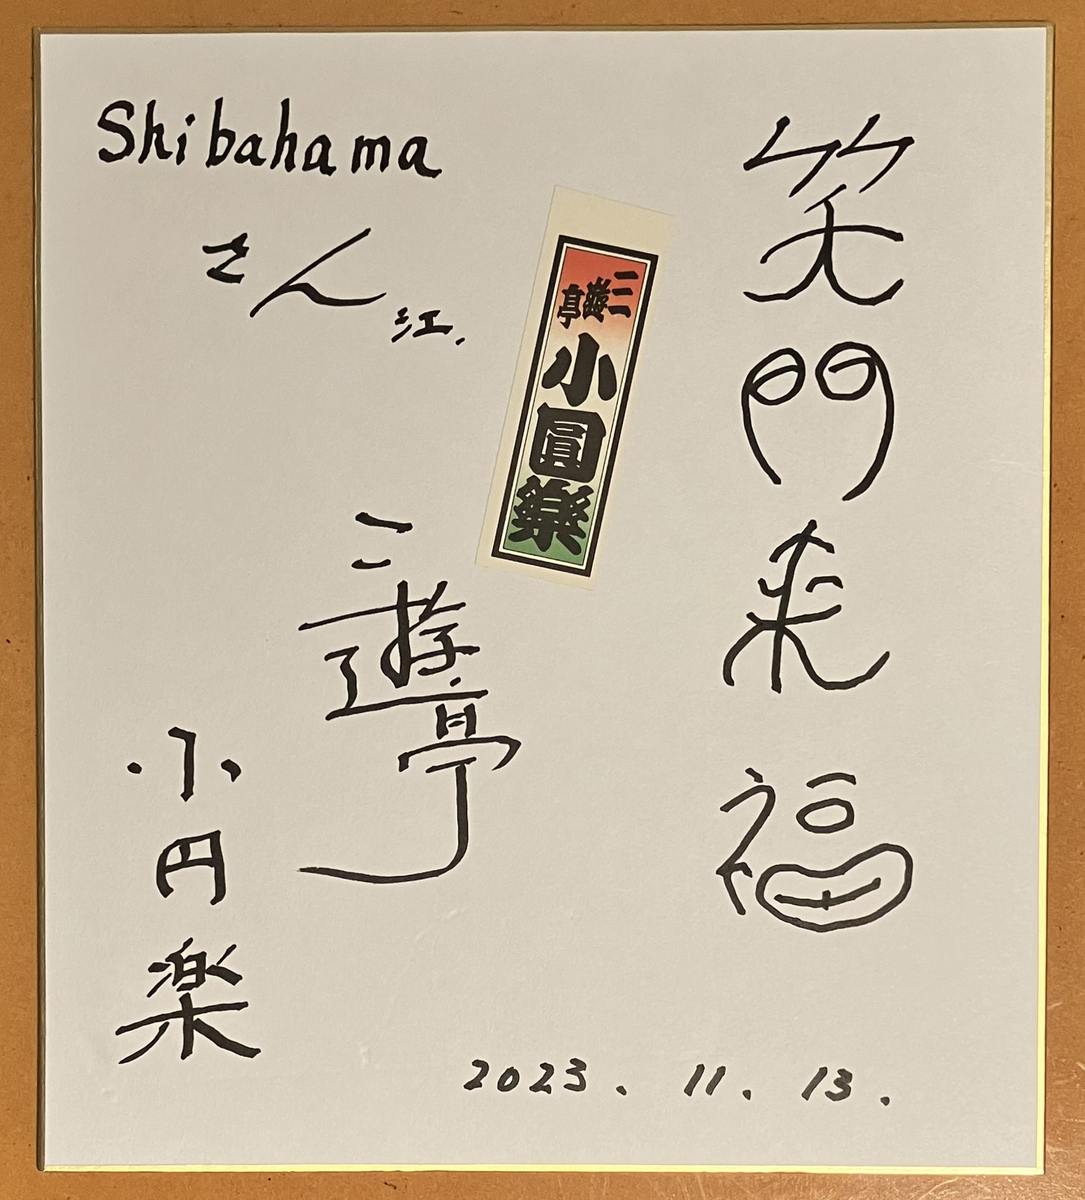 笑門来福
三遊亭
小圓樂
Shibahama
さん江.
三遊亭
小円楽
2023. 11. 13.